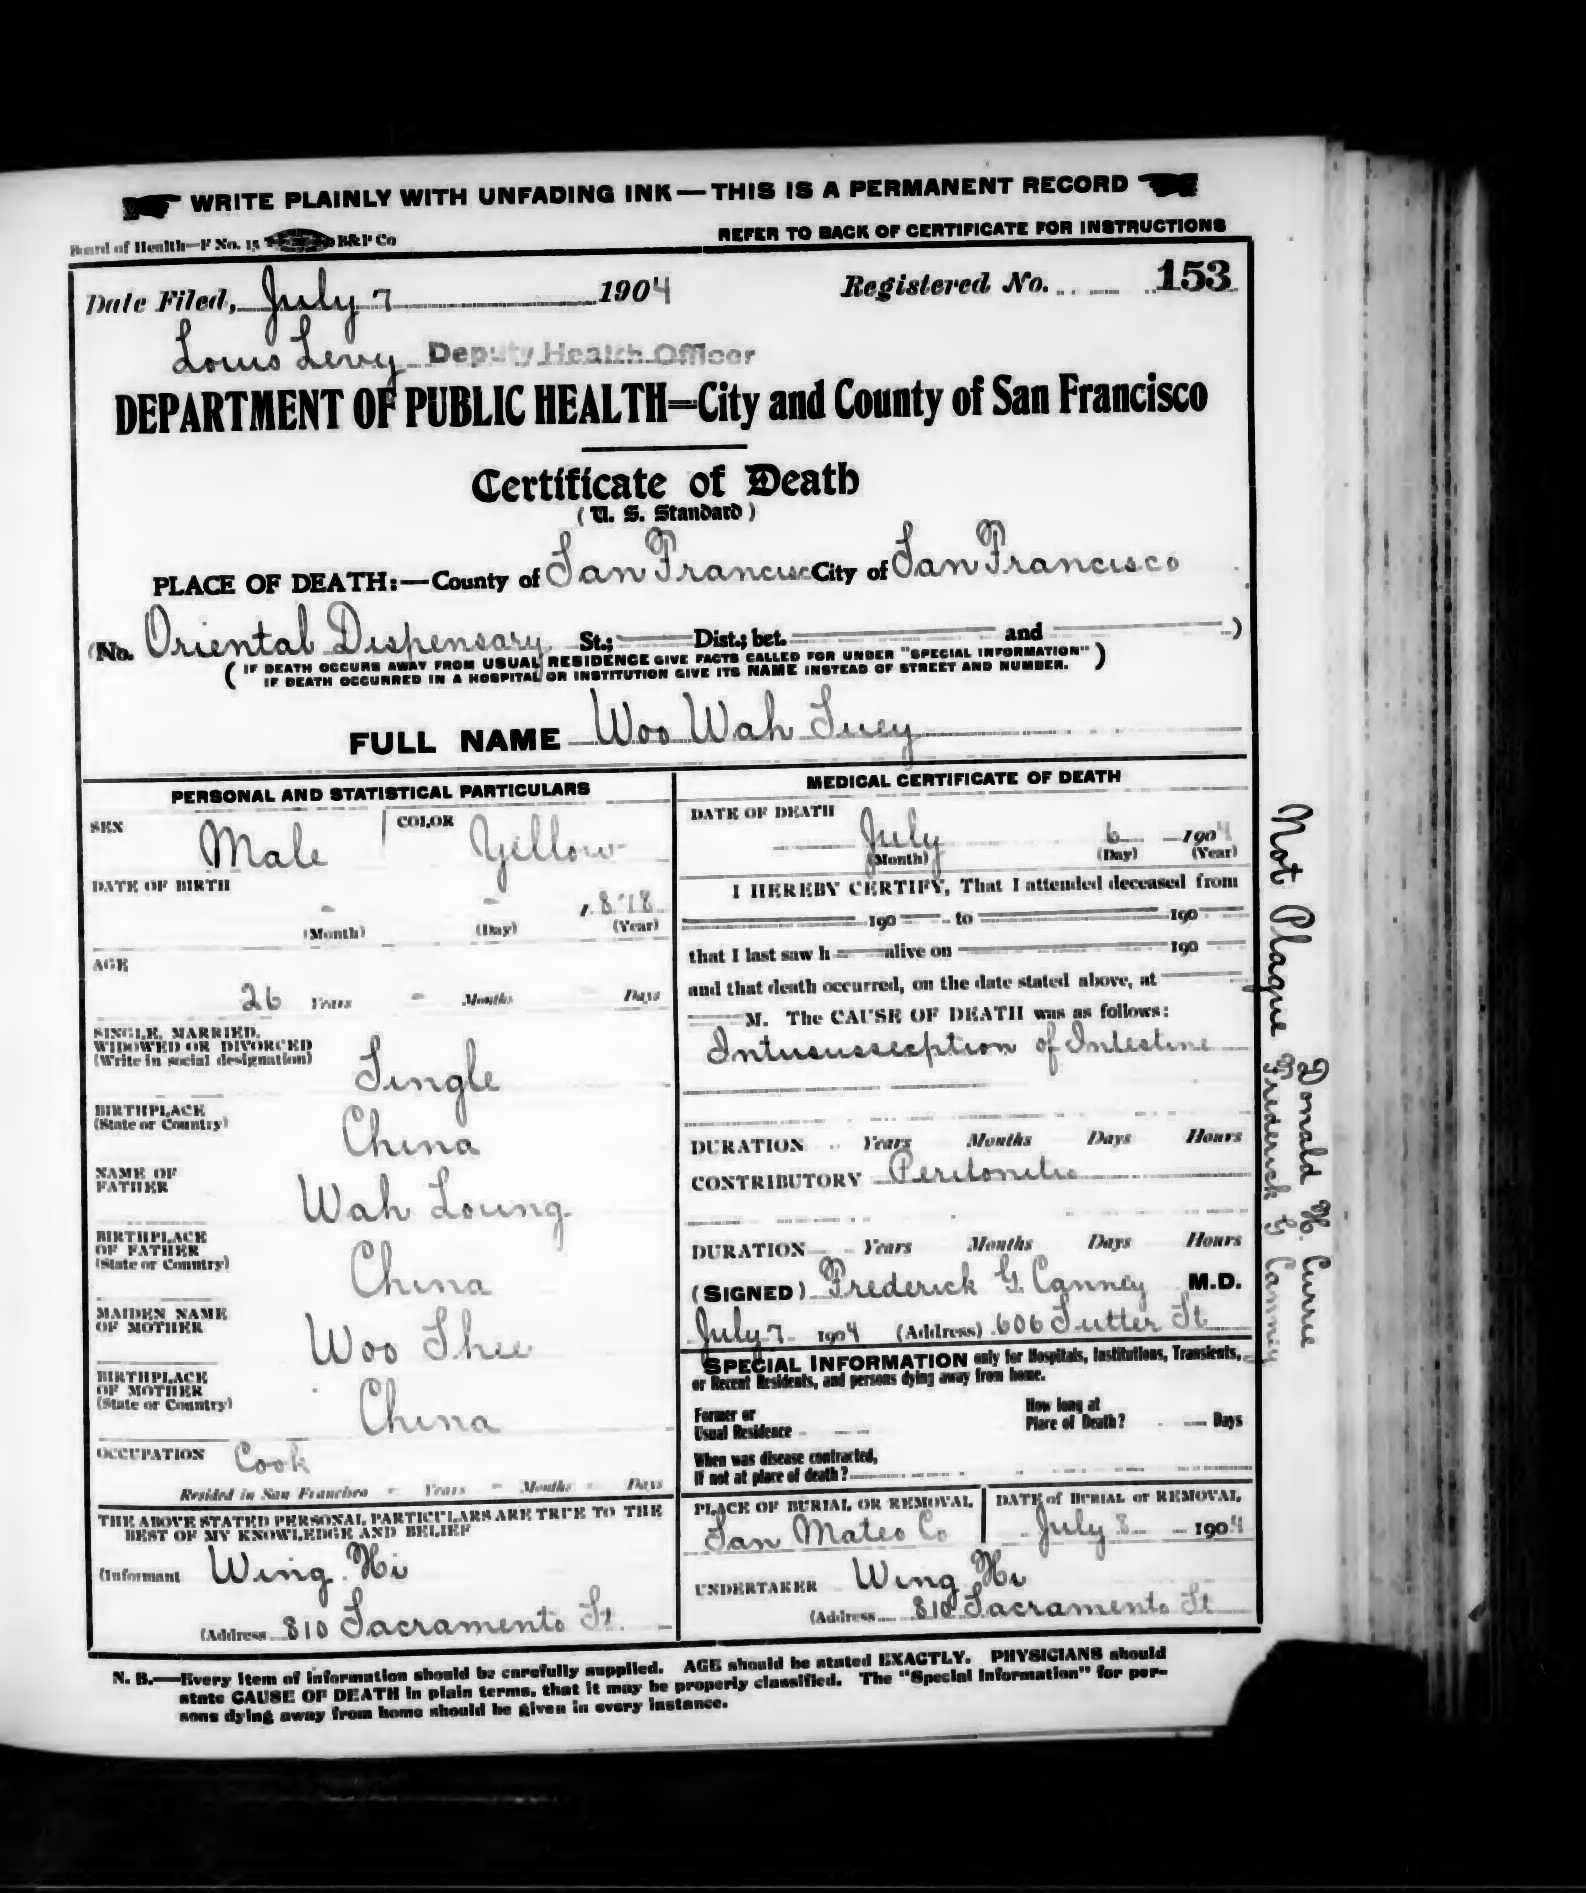 WRITE PLAINLY WITH UNFADING INK—THIS IS A PERMANENT RECORD
Board of Health—F No. 15 B&P Co
REFER TO BACK OF CERTIFICATE FOR INSTRUCTIONS
Date Filed, July 7 1904 Registered No. 153
Louis Levy Deputy Health Officer
DEPARTMENT OF PUBLIC HEALTH=City and County of San Francisco
Certificate of Death
( U. S. Standard )
PLACE OF DEATH:—County of San Francisco City of San Francisco
(No. Oriental Dispensary St.; Dist.; bet. and )
( IF DEATH OCCURS AWAY FROM USUAL RESIDENCE GIVE FACTS CALLED FOR UNDER "SPECIAL INFORMATION" )
IF DEATH OCCURRED IN A HOSPITAL OR INSTITUTION GIVE ITS NAME INSTEAD OF STREET AND NUMBER.
FULL NAME Woo Wah Suey
PERSONAL AND STATISTICAL PARTICULARS
SEX Male COLOR Yellow
DATE OF BIRTH
- - 1878
(Month) (Day) (Year)
AGE
26 Years - Months Days
SINGLE, MARRIED,
WIDOWED OR DIVORCED
(Write in social designation) Single
BIRTHPLACE
(State or Country) China
NAME OF
FATHER Wah Loung
BIRTHPLACE
OF FATHER
(State or Country) China
MAIDEN NAME
OF MOTHER Woo Shee
BIRTHPLACE
OF MOTHER
(State or Country) China
OCCUPATION Cook
Resided in San Francisco - Years - Months - Days
THE ABOVE STATED PERSONAL PARTICULARS ARE TRUE TO THE
BEST OF MY KNOWLEDGE AND BELIEF
(Informant Wing Hi
(Address 810 Sacramento St.
MEDICAL CERTIFICATE OF DEATH
DATE OF DEATH
July 6 1904
(Month) (Day) (Year)
I HEREBY CERTIFY, That I attended deceased from
190 to 190
that I last saw h alive on 190
and that death occurred, on the date stated above, at
M. The CAUSE OF DEATH was as follows:
Intususseception of Intestine
DURATION Years Months Days Hours
CONTRIBUTORY Peritonitis
DURATION Years Months Days Hours
(SIGNED) Frederick G. Canney M.D.
July 7 1904 (Address) 606 Sutter St
SPECIAL INFORMATION only for Hospitals, Institutions, Transients,
or Recent Residents, and persons dying away from home.
Former or
Usual Residence
How long at
Place of Death? Days
When was disease contracted,
If not at place of death?
PLACE OF BURIAL OR REMOVAL
San Mateo Co
DATE of BURIAL or REMOVAL
July 8 1904
UNDERTAKER Wing Hi
(Address 810 Sacramento St
N. B.—Every item of information should be carefully supplied. AGE should be stated EXACTLY. PHYSICIANS should
state CAUSE OF DEATH in plain terms, that it may be properly classified. The "Special Information" for per-
sons dying away from home should be given in every instance.
Not Plague
Donald H. Currie
Frederick G Canney